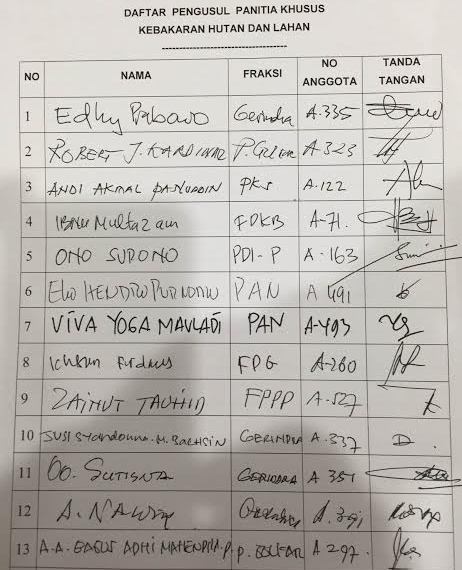 DAFTAR PENGUSUL PANITIA KHUSUS
KEBAKARAN HUTAN DAN LAHAN
NO NAMA FRAKSI NO ANGGOTA TANDA TANGAN
1 Edhy Prabowo Gerindra A.335
2 ROBERT J. KARDINAL P. Golkar A.323
3 ANDI AKMAL PASLUDDIN PKS A.122
4 IBNU Multazam FPKB A-71.
5 ONO SURONO PDI-P A-163
6 EKO HENDRO PURNOMO PAN A 491
7 VIVA YOGA MAULADI PAN A-493
8 Ichsan Firdaus FPG A-260
9 ZAINUT TAUHID FPPP A.527
10 SUSI M. BACHSIN GERINDRA A.337
11 OO. SUTISNA GERINDRA A 351
12 A. NAWIR
13 A.A. BAGUS ADHI MAHENDRA.P. P. GOLKAR A 297.